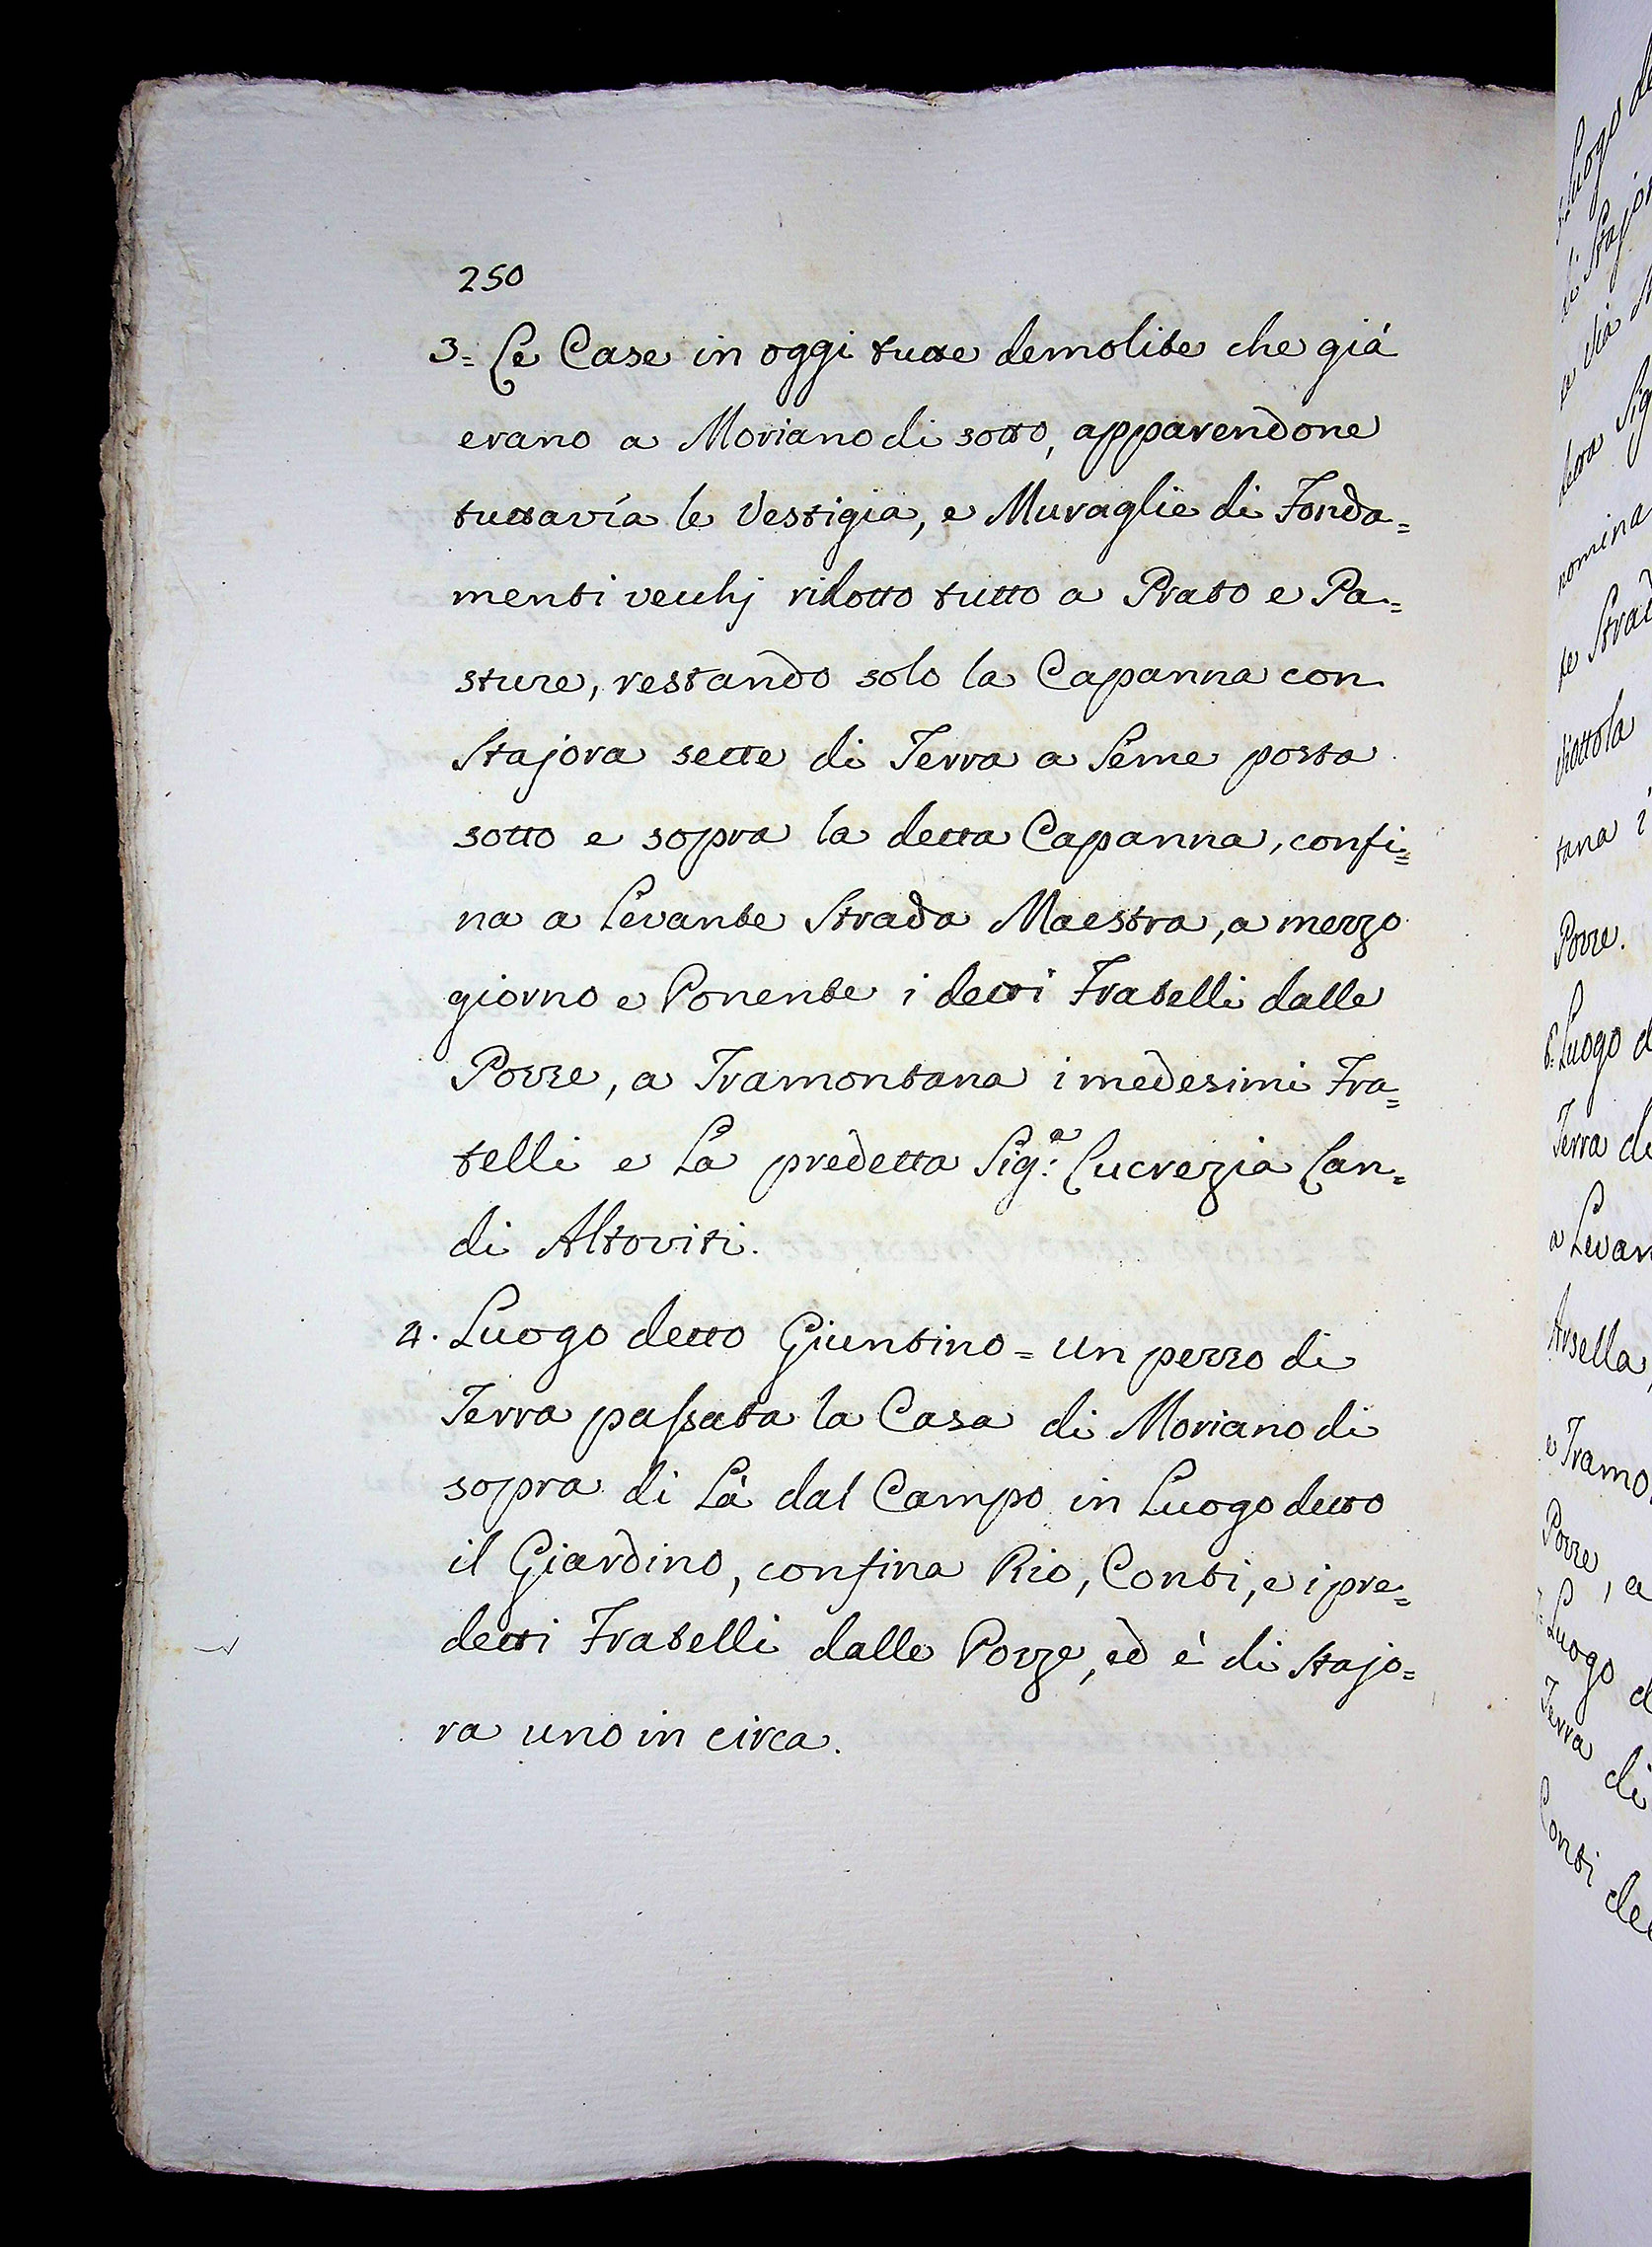 250
3= Le Case in oggi tutte demolite che giá
erano a Moriano di sotto, apparendone
tuttavía le Vestigia, e Muraglie di Fonda=
menti vecchj ridotto tutto a Prato e Pa=
sture, restando solo la Capanna con
Stajora sette di Terra a Seme posta
sotto e sopra la detta Capanna, confi=
na a Levante Strada Maestra, a mezzo
giorno e Ponente i detti Fratelli dalle
Pozze, a Tramontana i medesimi Fra=
telli e La predetta Sig.ª Lucrezia Lan=
di Altoviti.
4. Luogo detto Giuntino = un pezzo di
Terra paſsata la Casa di Moriano di
sopra di Là dal Campo in Luogo detto
il Giardino, confina Rio, Conti, e i pre=
detti Fratelli dalle Pozze, ed è di stajo=
ra uno in circa.
Luogo
di Stajor
e Via
detta Sig
nomina
te Strad
viottola
tana i
Pozze.
6. Luogo d
Terra di
a Levan
Arsella,
e Tramo
Pozze, a
Luogo d
Terra di
Conti de